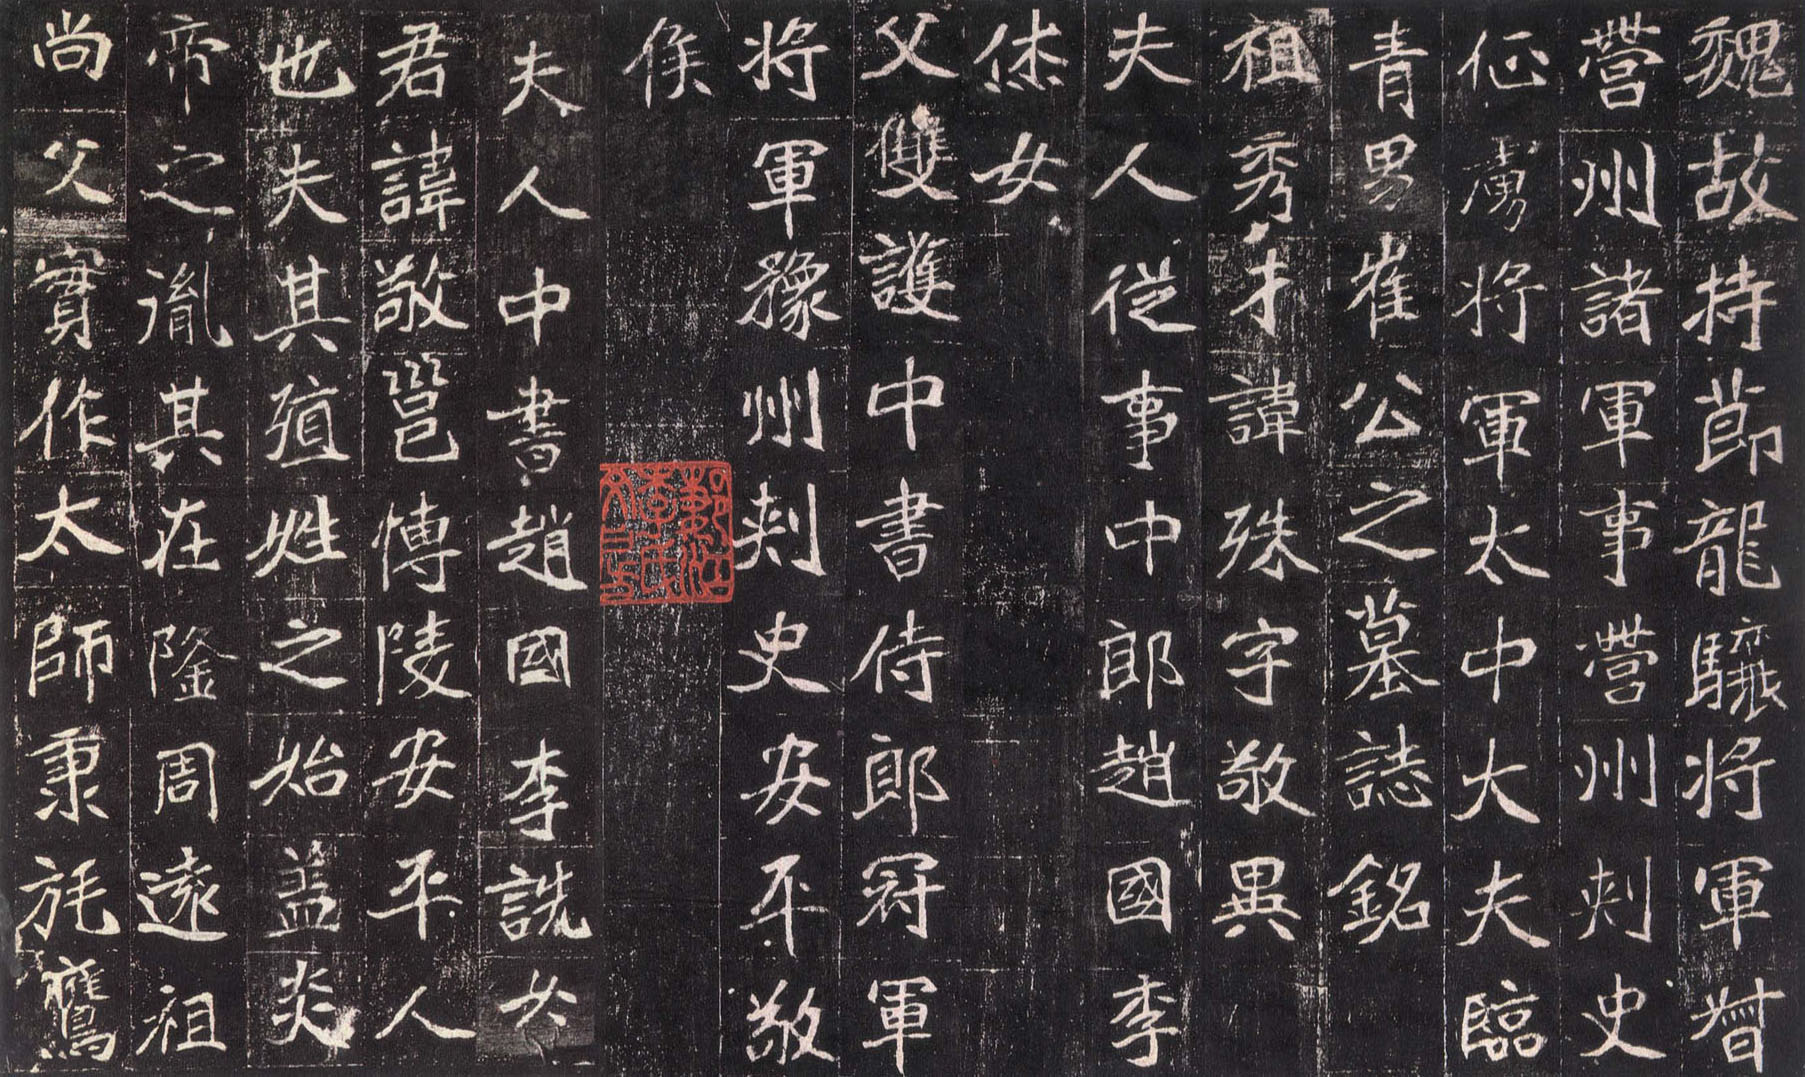 魏故持莭龍驤將軍督
營州諸軍事營州刾史
征虜將軍太中大夫臨
青男崔公之墓誌銘
祖秀才諱殊字敬異
夫人從事中郎趙國李
休女
父雙護中書侍郎冠軍
將軍豫州刾史安平敬
侯
夫人中書趙國李詵女
君諱敬邕博陵安平人
也夫其殖姓之始蓋炎
帝之胤其在隆周遠祖
尚父實作太師秉旄鷹